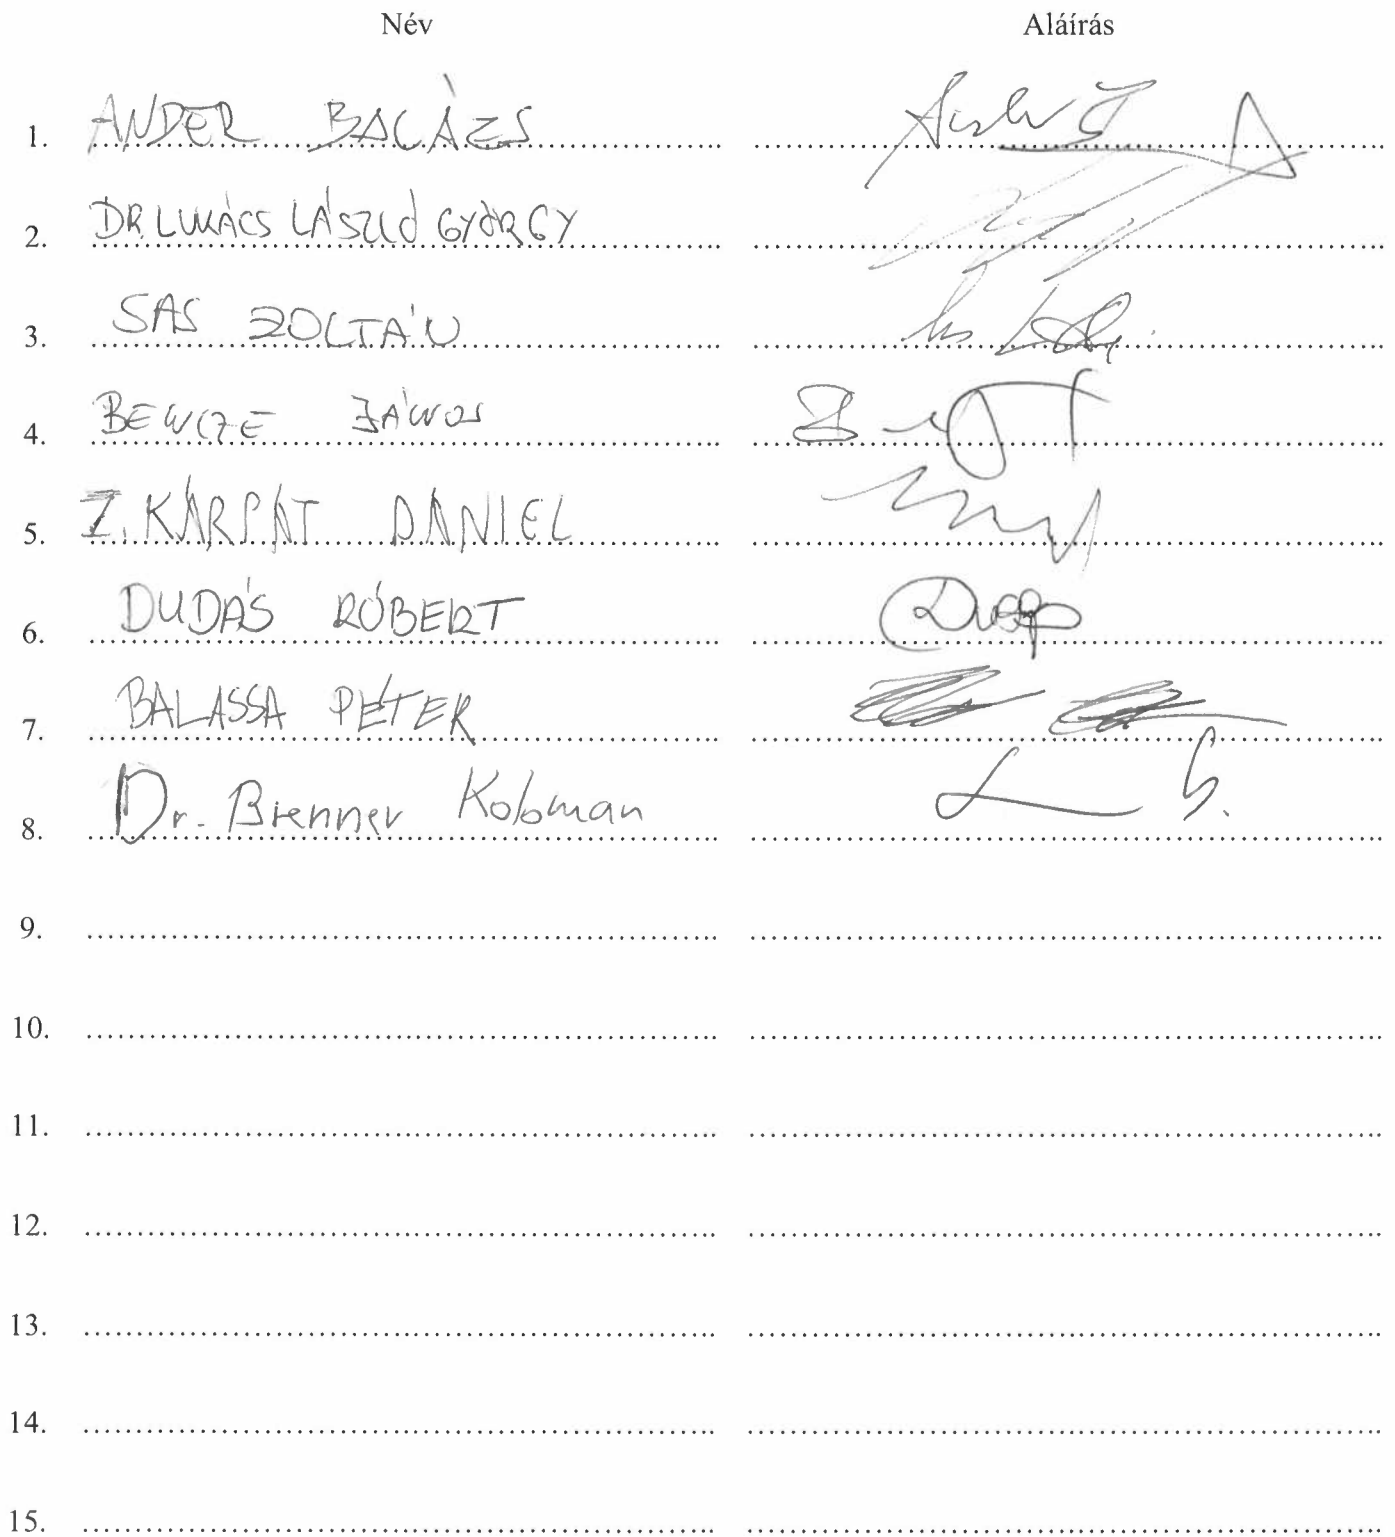 Név Aláírás
1. ANDER BALÁZS
2. DR LUKÁCS LÁSZLÓ GYÖRGY
3. SAS ZOLTÁN
4. BENCZE JÁNOS
5. Z. KÁRPÁT DÁNIEL
6. DUDÁS RÓBERT
7. BALASSA PÉTER
8. Dr. Brenner Koloman
9.
10.
11.
12.
13.
14.
15.